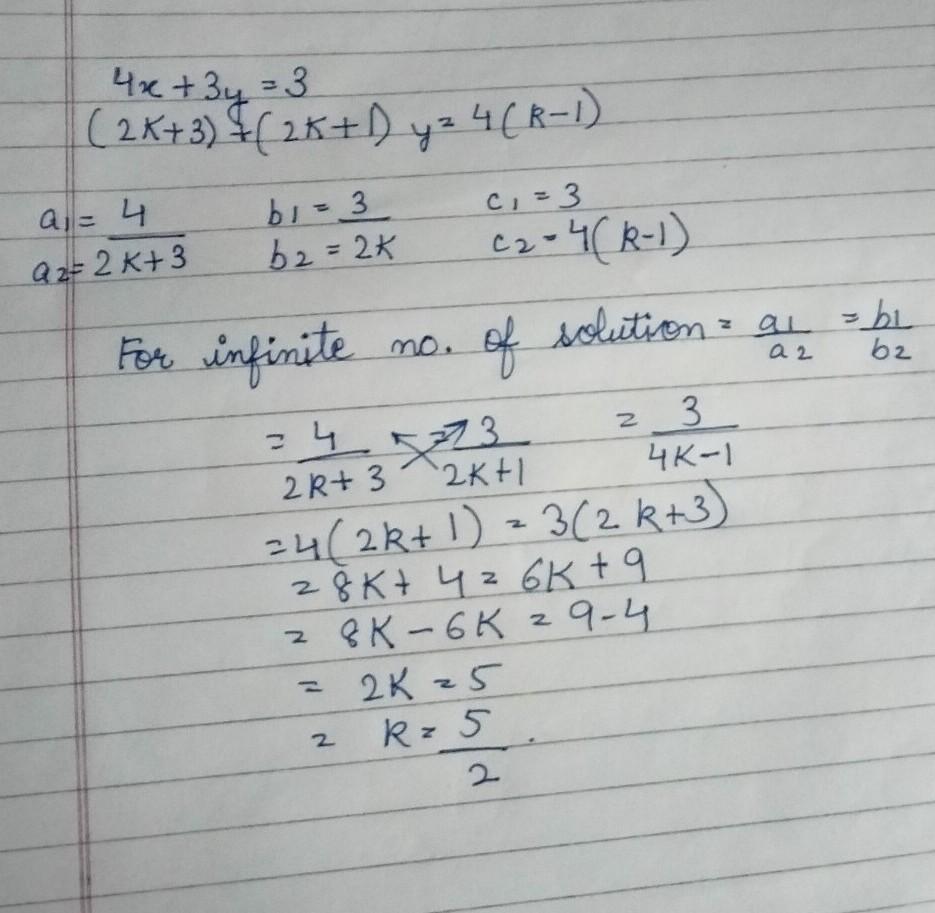 4x + 3y = 3
(2K+3) + (2K+1) y = 4(k-1)
a1 = 4 b1 = 3 c1 = 3
a2 = 2K+3 b2 = 2K c2 = 4(k-1)
For infinite no. of solution = a1/a2 = b1/b2
= 4/2k+3 = 3/2K+1 = 3/4K-1
= 4(2k+1) = 3(2k+3)
= 8K+4 = 6K+9
= 8K-6K = 9-4
= 2K = 5
= k = 5/2.